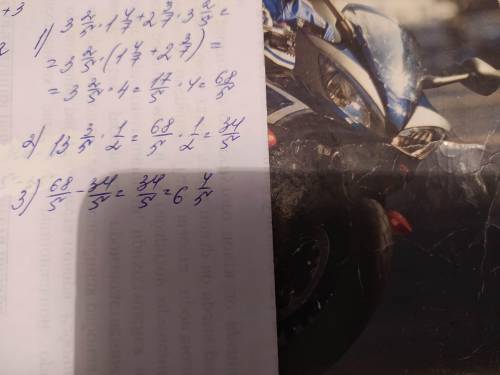 +3
2 1) 3 2/5 · 1 4/7 + 2 3/7 · 3 2/5 =
= 3 2/5 · (1 4/7 + 2 3/7) =
= 3 2/5 · 4 = 17/5 · 4 = 68/5
2) 13 3/5 · 1/2 = 68/5 · 1/2 = 34/5
3) 68/5 - 34/5 = 34/5 = 6 4/5